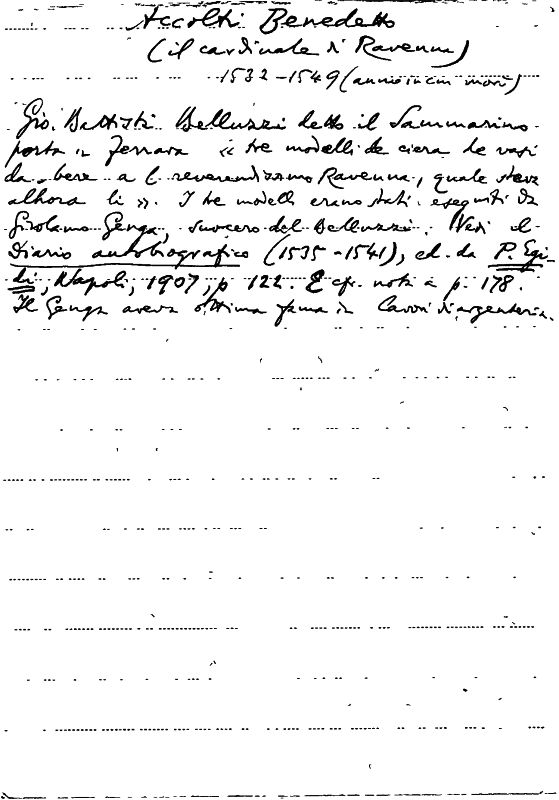 Accolti Benedetto
(il cardinale di Ravenna)
1532-1549 (anno in cui morì)
Gio. Battista Belluzzi detto il Sammarino
porta a Ferrara « tre modelli de ciera de vasi
da bere a l reverendissimo Ravenna, quale stava
alhora li ». I tre modelli erano stati eseguiti da
Girolamo Genga, suocero del Belluzzi. Vedi il
Diario autobiografico (1535-1541), ed. da P. Egi-
di, Napoli, 1907, p. 122. E cfr. nota a p. 178.
Il Genga aveva ottima fama in lavori d'argenteria.